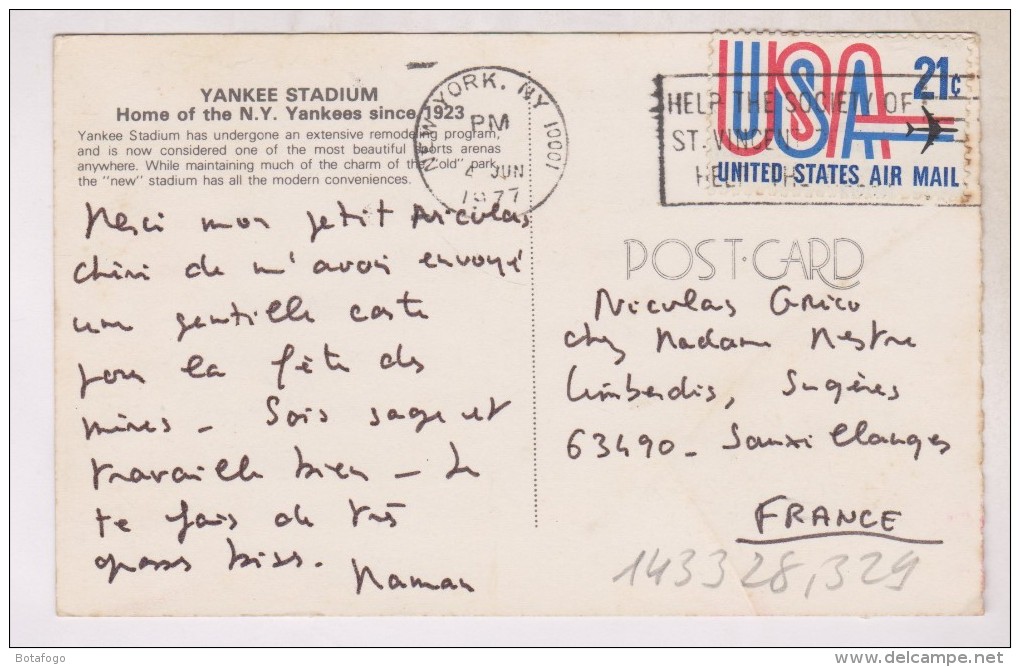 YANKEE STADIUM
Home of the N.Y. Yankees since 1923
Yankee Stadium has undergone an extensive remodeling program,
and is now considered one of the most beautiful sports arenas
anywhere. While maintaining much of the charm of the "old" park,
the "new" stadium has all the modern conveniences.
NEW YORK, NY 10001
PM
2 JUN
1977
HELP THE SOCIETY OF
ST. VINCENT
HELP THE
USA
21c
UNITED STATES AIR MAIL
Merci mon petit Nicolas
chéri de m'avoir envoyé
une gentille carte
pour la fête des
mères - Sois sage et
travaille bien - Je
te fais de très
grosses bises.
Maman
POST-CARD
Nicolas Grico
chez Madame Mestre
Limberdis, Sugères
63490 - Sauxillanges
FRANCE
143328,329
Botafogo
www.delcampe.net